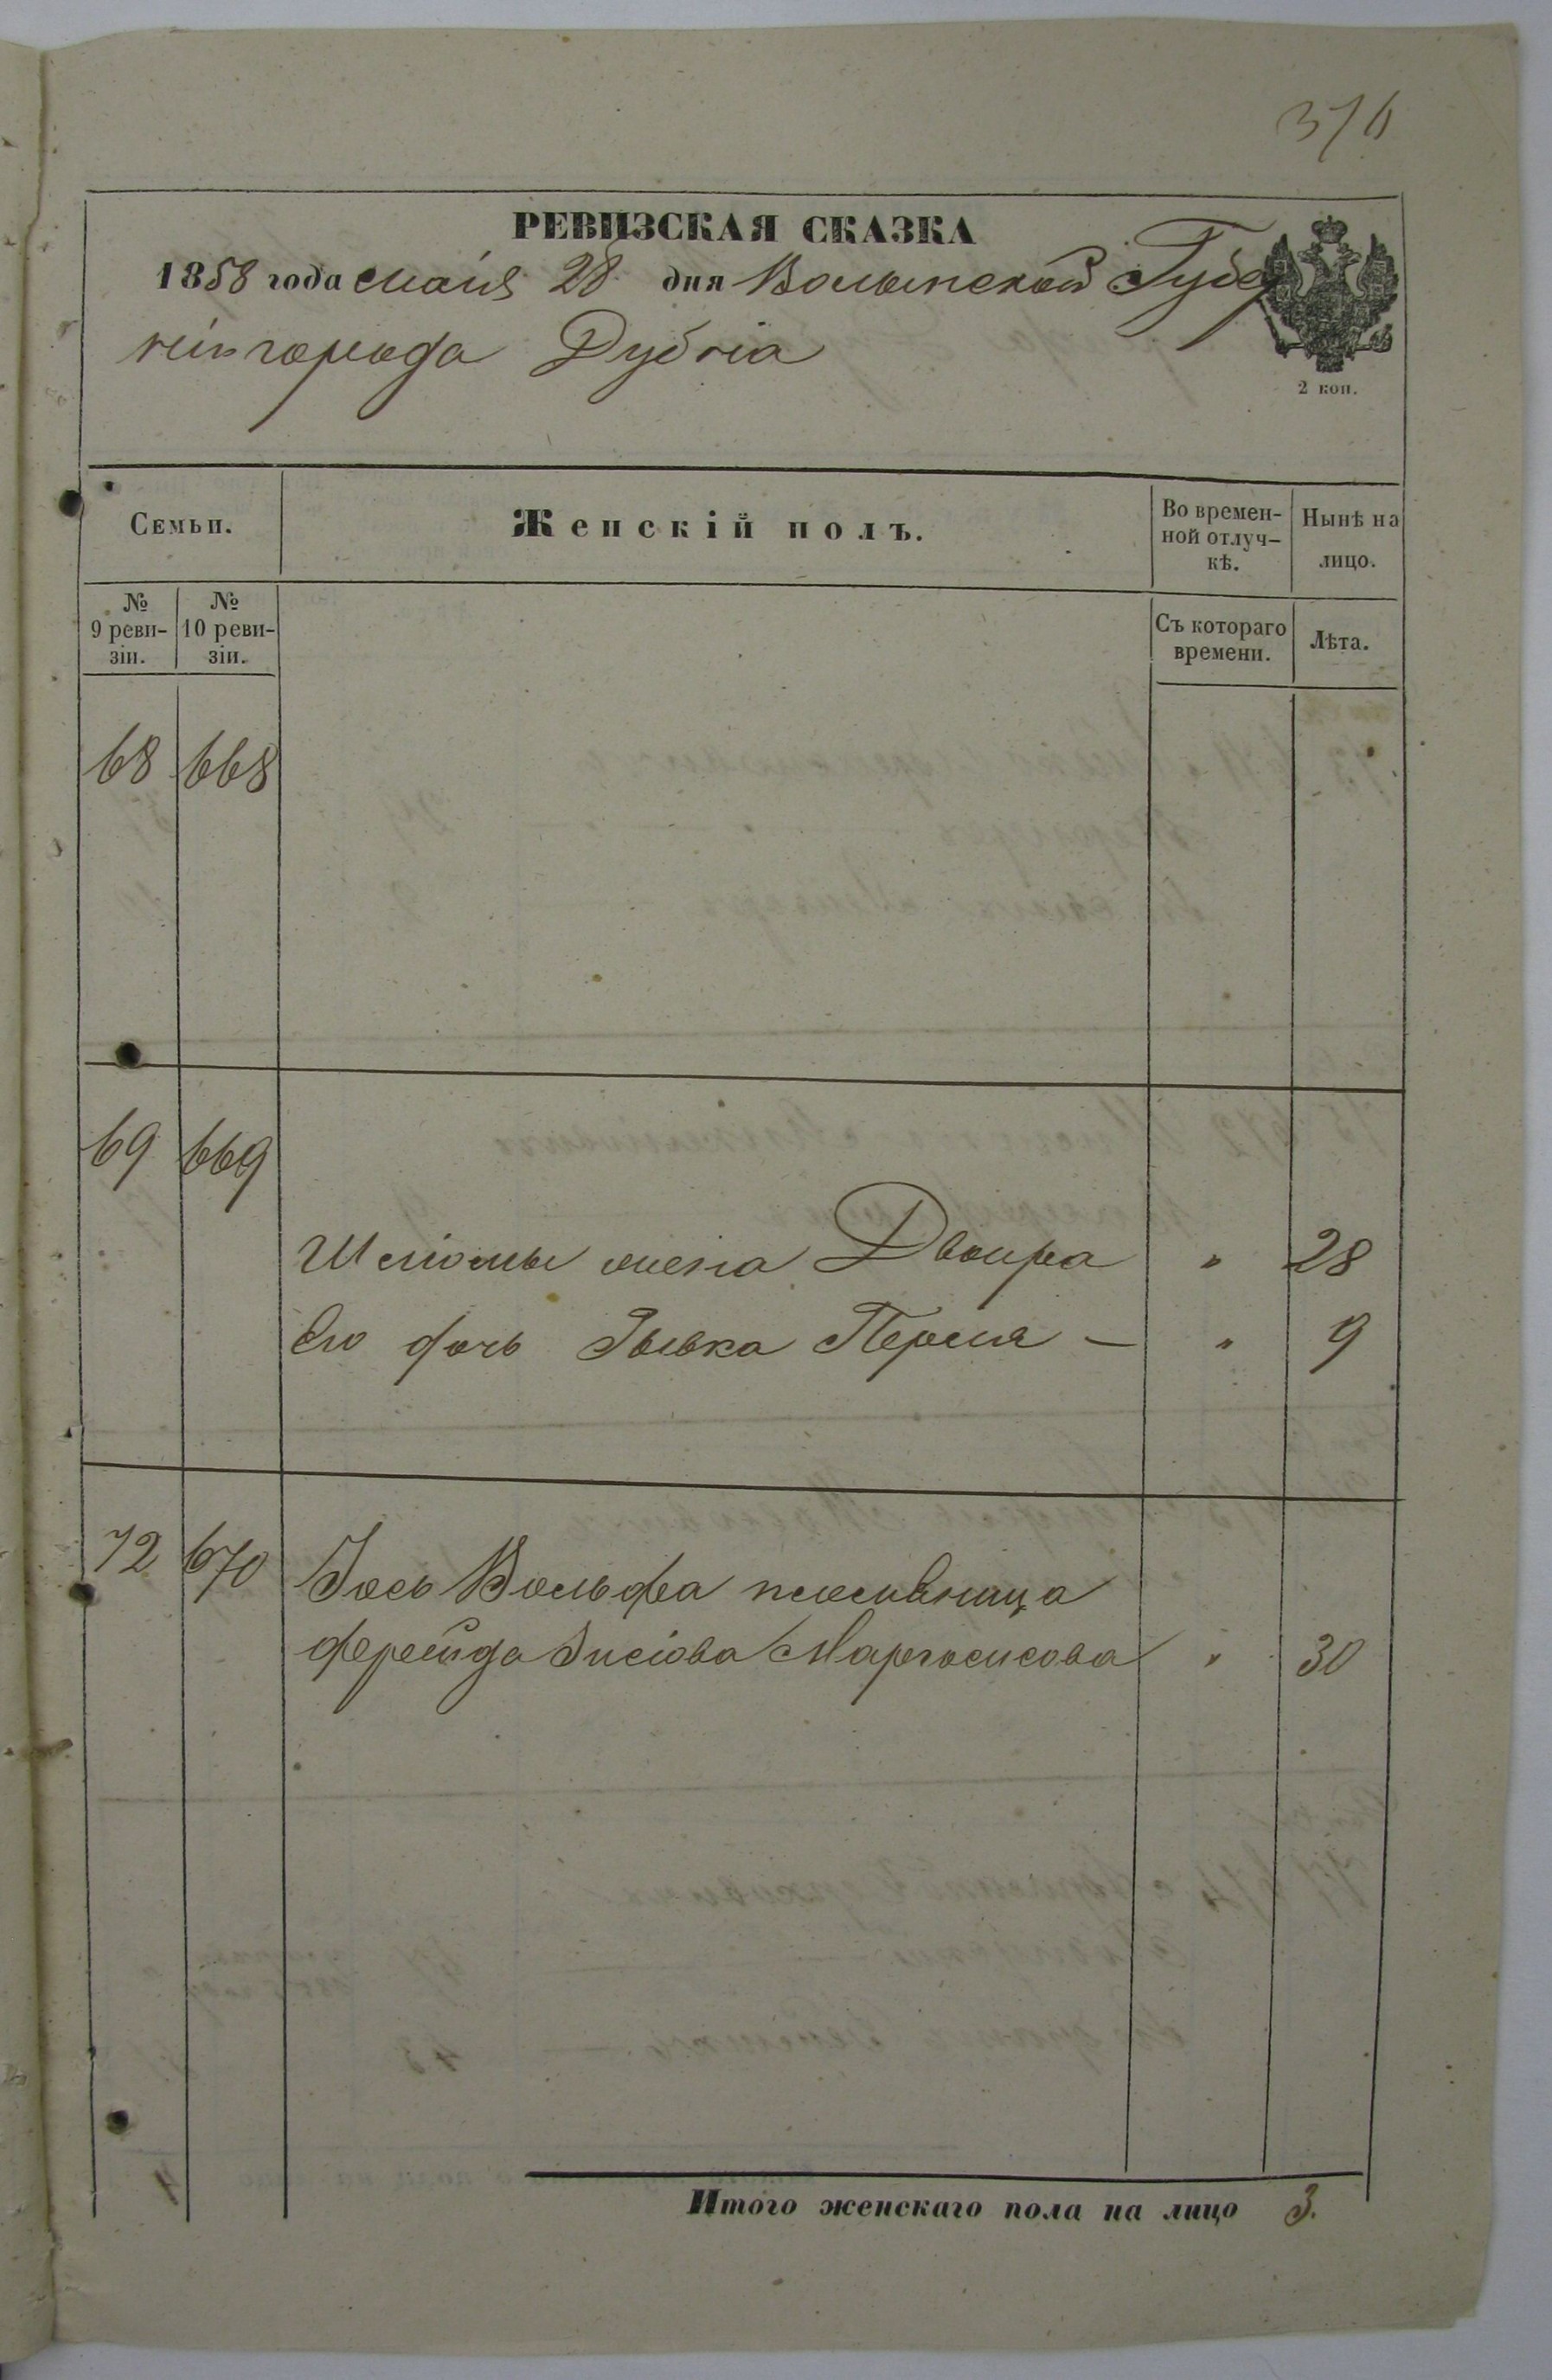 376
РЕВИЗСКАЯ СКАЗКА
1858 года Маія 28 дня Волынской Губер
ніи города Дубна
2 коп.
Семьи.
Женскій полъ.
Во времен-
ной отлуч-
кѣ.
Нынѣ на
лицо.
№
9 реви-
зіи.
№
10 реви-
зіи.
Съ котораго
времени.
Лѣта.
68 668
69 669
Шліомы жена Двойра " 28
Его дочь Рывка Перля — " 9
72 670 Іось Вольфа племѣница
Фрейда " 30
Итого женскаго пола на лицо 3.